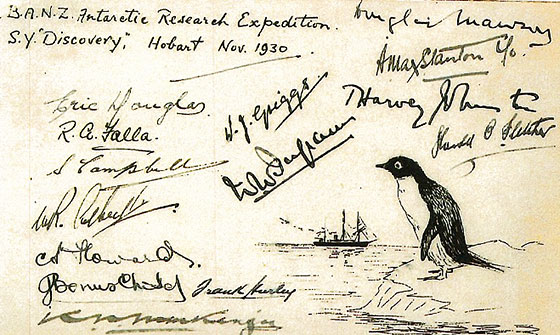 B.A.N.Z. Antarctic Research Expedition.
S.Y. "Discovery", Hobart Nov. 1930
Douglas Mawson
A Max Stanton C/o.
T Harvey Johnston
Harold O Fletcher
Eric Douglas
R.A. Falla.
H.J. Griggs
S Campbell
W W Ingram
A Howard
J Bonus Child
Frank Hurley